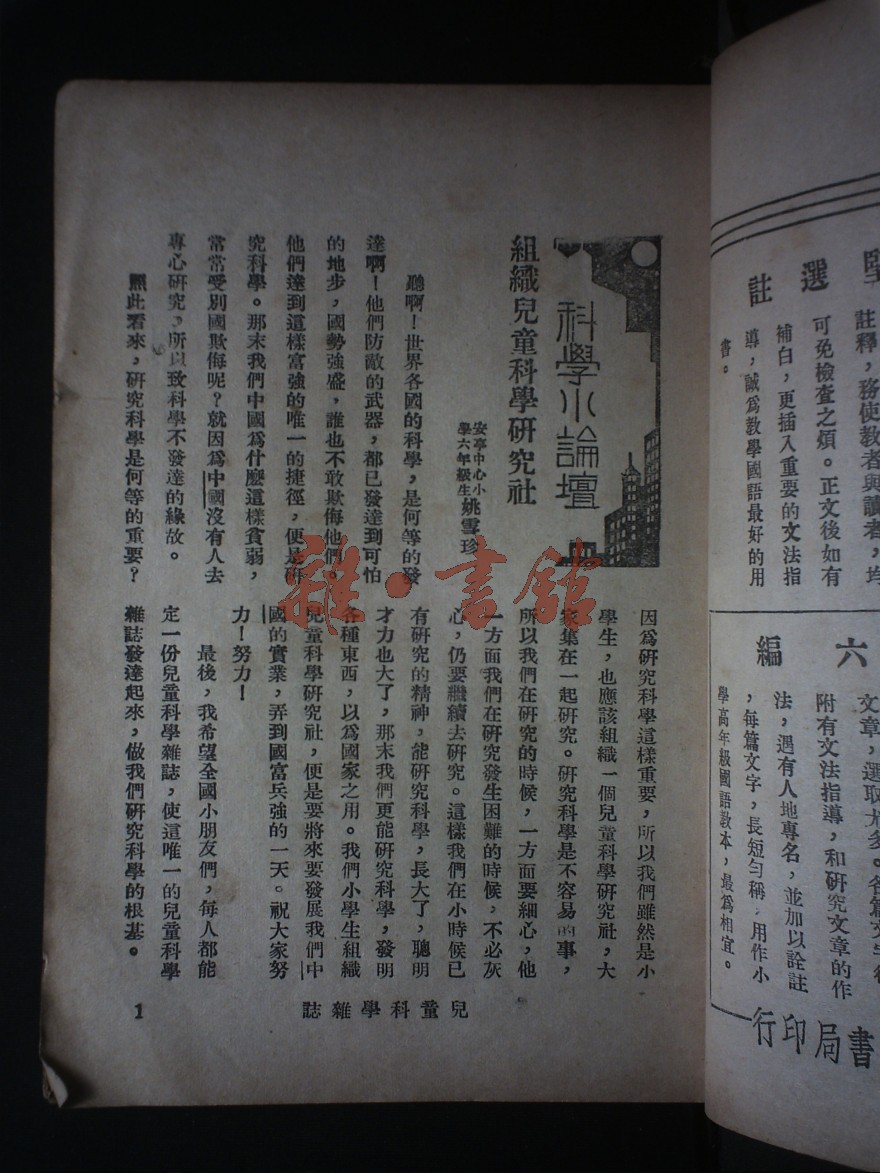 科學小論壇
組織兒童科學研究社
安亭中心小
學六年級生
姚雪珍
聽啊！世界各國的科學，是何等的發
達啊！他們防敵的武器，都已發達到可怕
的地步，國勢強盛，誰也不敢欺侮他們。
他們達到這樣富強的唯一的捷徑，便是研
究科學。那末我們中國爲什麼這樣貧弱，
常常受別國欺侮呢？就因爲中國沒有人去
專心研究，所以致科學不發達的緣故。
照此看來，研究科學是何等的重要？
因爲研究科學這樣重要，所以我們雖然是小
學生，也應該組織一個兒童科學研究社，大
家集在一起研究。研究科學是不容易的事，
所以我們在研究的時候，一方面要細心，他
一方面我們在研究發生困難的時候，不必灰
心，仍要繼續去研究。這樣我們在小時候已
有研究的精神，能研究科學，長大了，聰明
才力也大了，那末我們更能研究科學，發明
各種東西，以爲國家之用。我們小學生組織
兒童科學研究社，便是要將來要發展我們中
國的實業，弄到國富兵強的一天。祝大家努
力！努力！
最後，我希望全國小朋友們，每人都能
定一份兒童科學雜誌，使這唯一的兒童科學
雜誌發達起來，做我們研究科學的根基。
兒童科學雜誌
1
雜·書館
選註
註釋，務使教者與讀者，均
可免檢查之煩。正文後如有
補白，更插入重要的文法指
導，誠爲教學國語最好的用
書。
六編
附有文法指導，和研究文章的作
法，遇有人地專名，並加以詮註
，每篇文字，長短勻稱，用作小
學高年級國語教本，最爲相宜。
書局印行